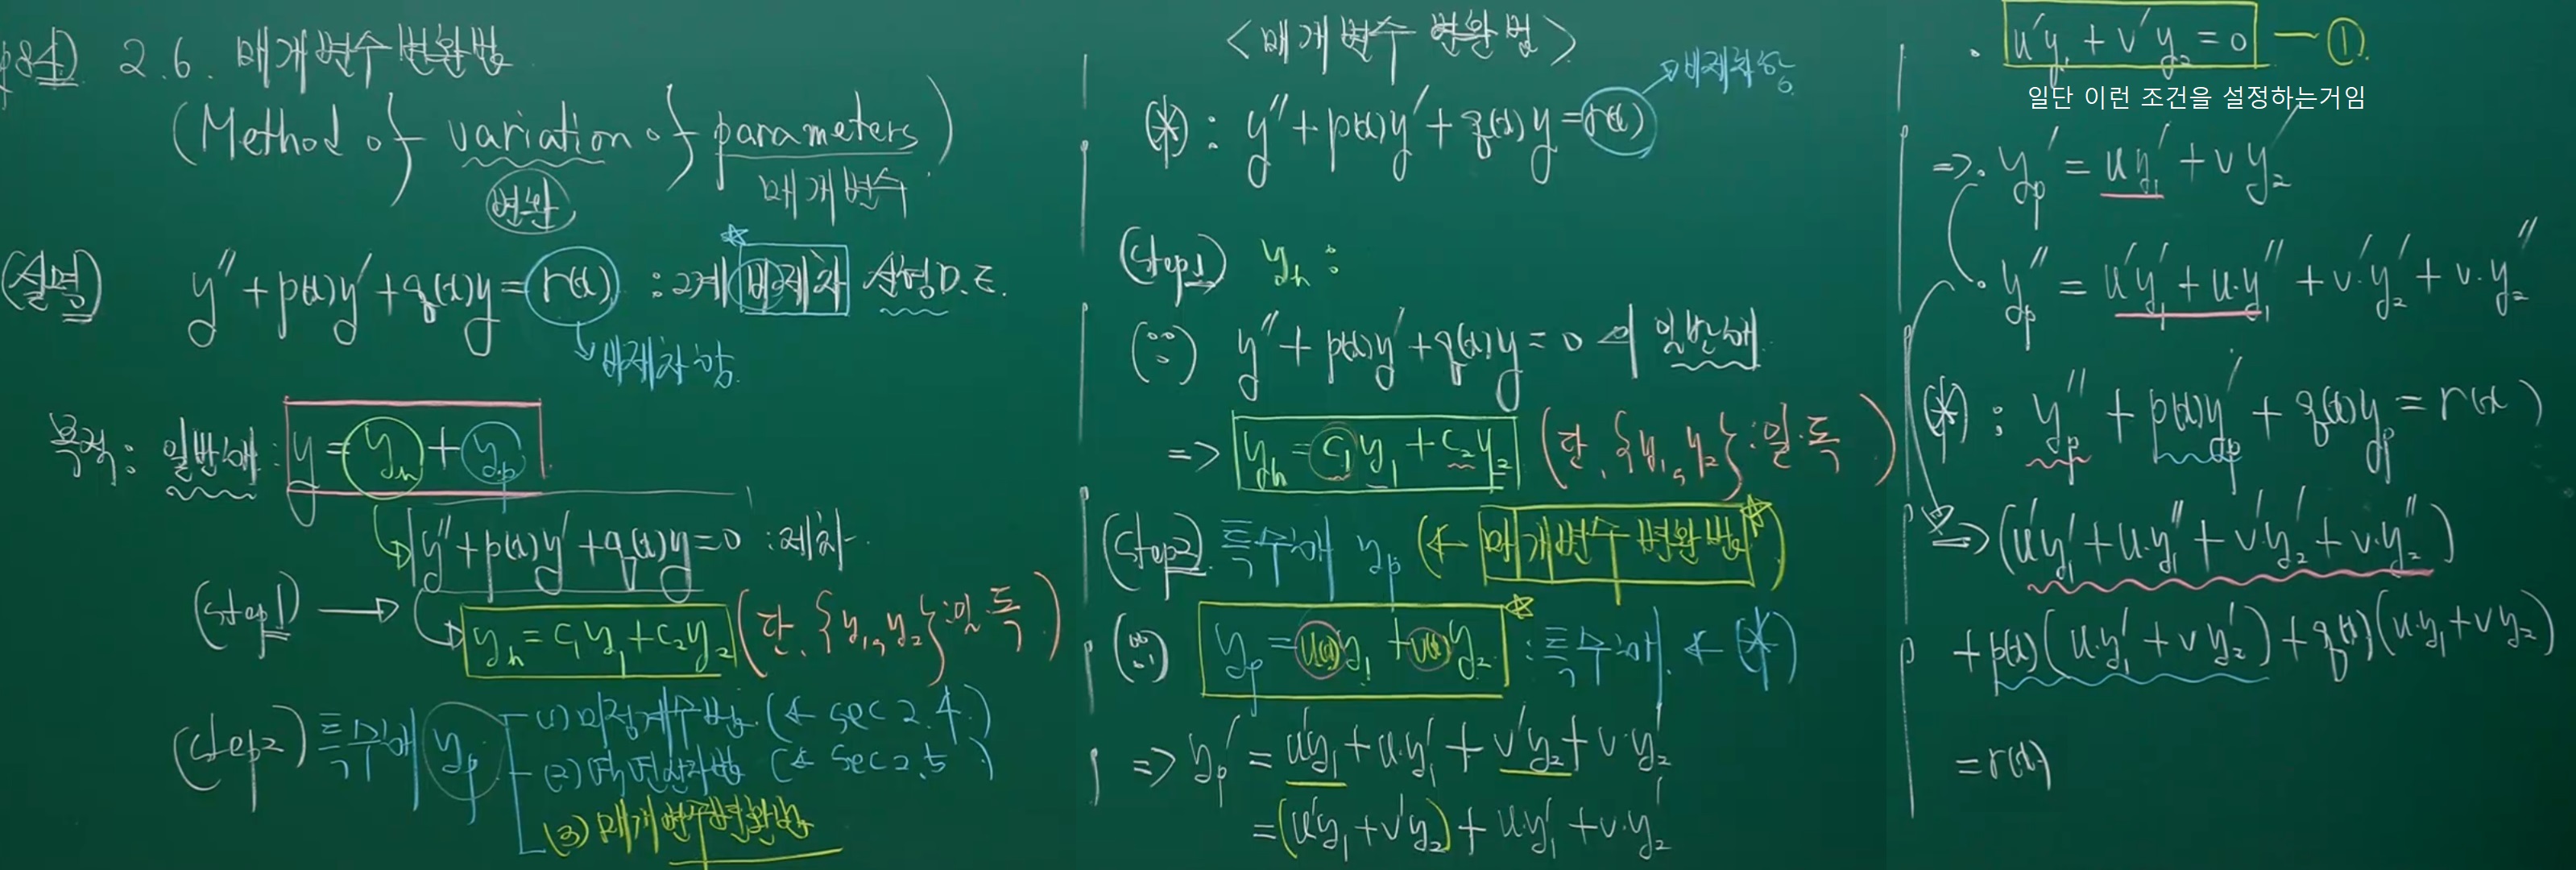 p84) 2.6. 매개변수변환법
(Method of variation of parameters)
변환 매개변수
(설명) y'' + p(x)y' + q(x)y = r(x) : 2계 비제차 선형 D.E.
비제차항.
목적: 일반해: y = y_h + y_p
y'' + p(x)y' + q(x)y = 0 : 제차.
(step1) → y_h = c₁y₁ + c₂y₂ (단, {y₁, y₂}: 일.독)
(step2) 특수해 y_p (1) 미정계수법. (← sec 2.4.)
(2) 역연산자법 (← sec 2.5)
(3) 매개변수변환법
<매개변수 변환법>
비제차항
(*) : y'' + p(x)y' + q(x)y = r(x)
(step1) y_h :
(∵) y'' + p(x)y' + q(x)y = 0 의 일반해.
=> y_h = c₁y₁ + c₂y₂ (단, {y₁, y₂}: 일.독)
(step2) 특수해 y_p (← 매개변수변환법)
(∵) y_p = u(x)y₁ + v(x)y₂ : 특수해. ← (*)
=> y_p' = u'y₁ + u·y₁' + v'y₂ + v·y₂'
= (u'y₁ + v'y₂) + u·y₁' + v·y₂'
· u'y₁ + v'y₂ = 0 — ①
일단 이런 조건을 설정하는거임
=> · y_p' = uy₁' + vy₂'
· y_p'' = u'y₁' + u·y₁'' + v'·y₂' + v·y₂''
(*) : y_p'' + p(x)y_p' + q(x)y_p = r(x)
=> (u'y₁' + u·y₁'' + v'·y₂' + v·y₂'')
+ p(x)(u·y₁' + vy₂') + q(x)(u·y₁ + vy₂)
= r(x)